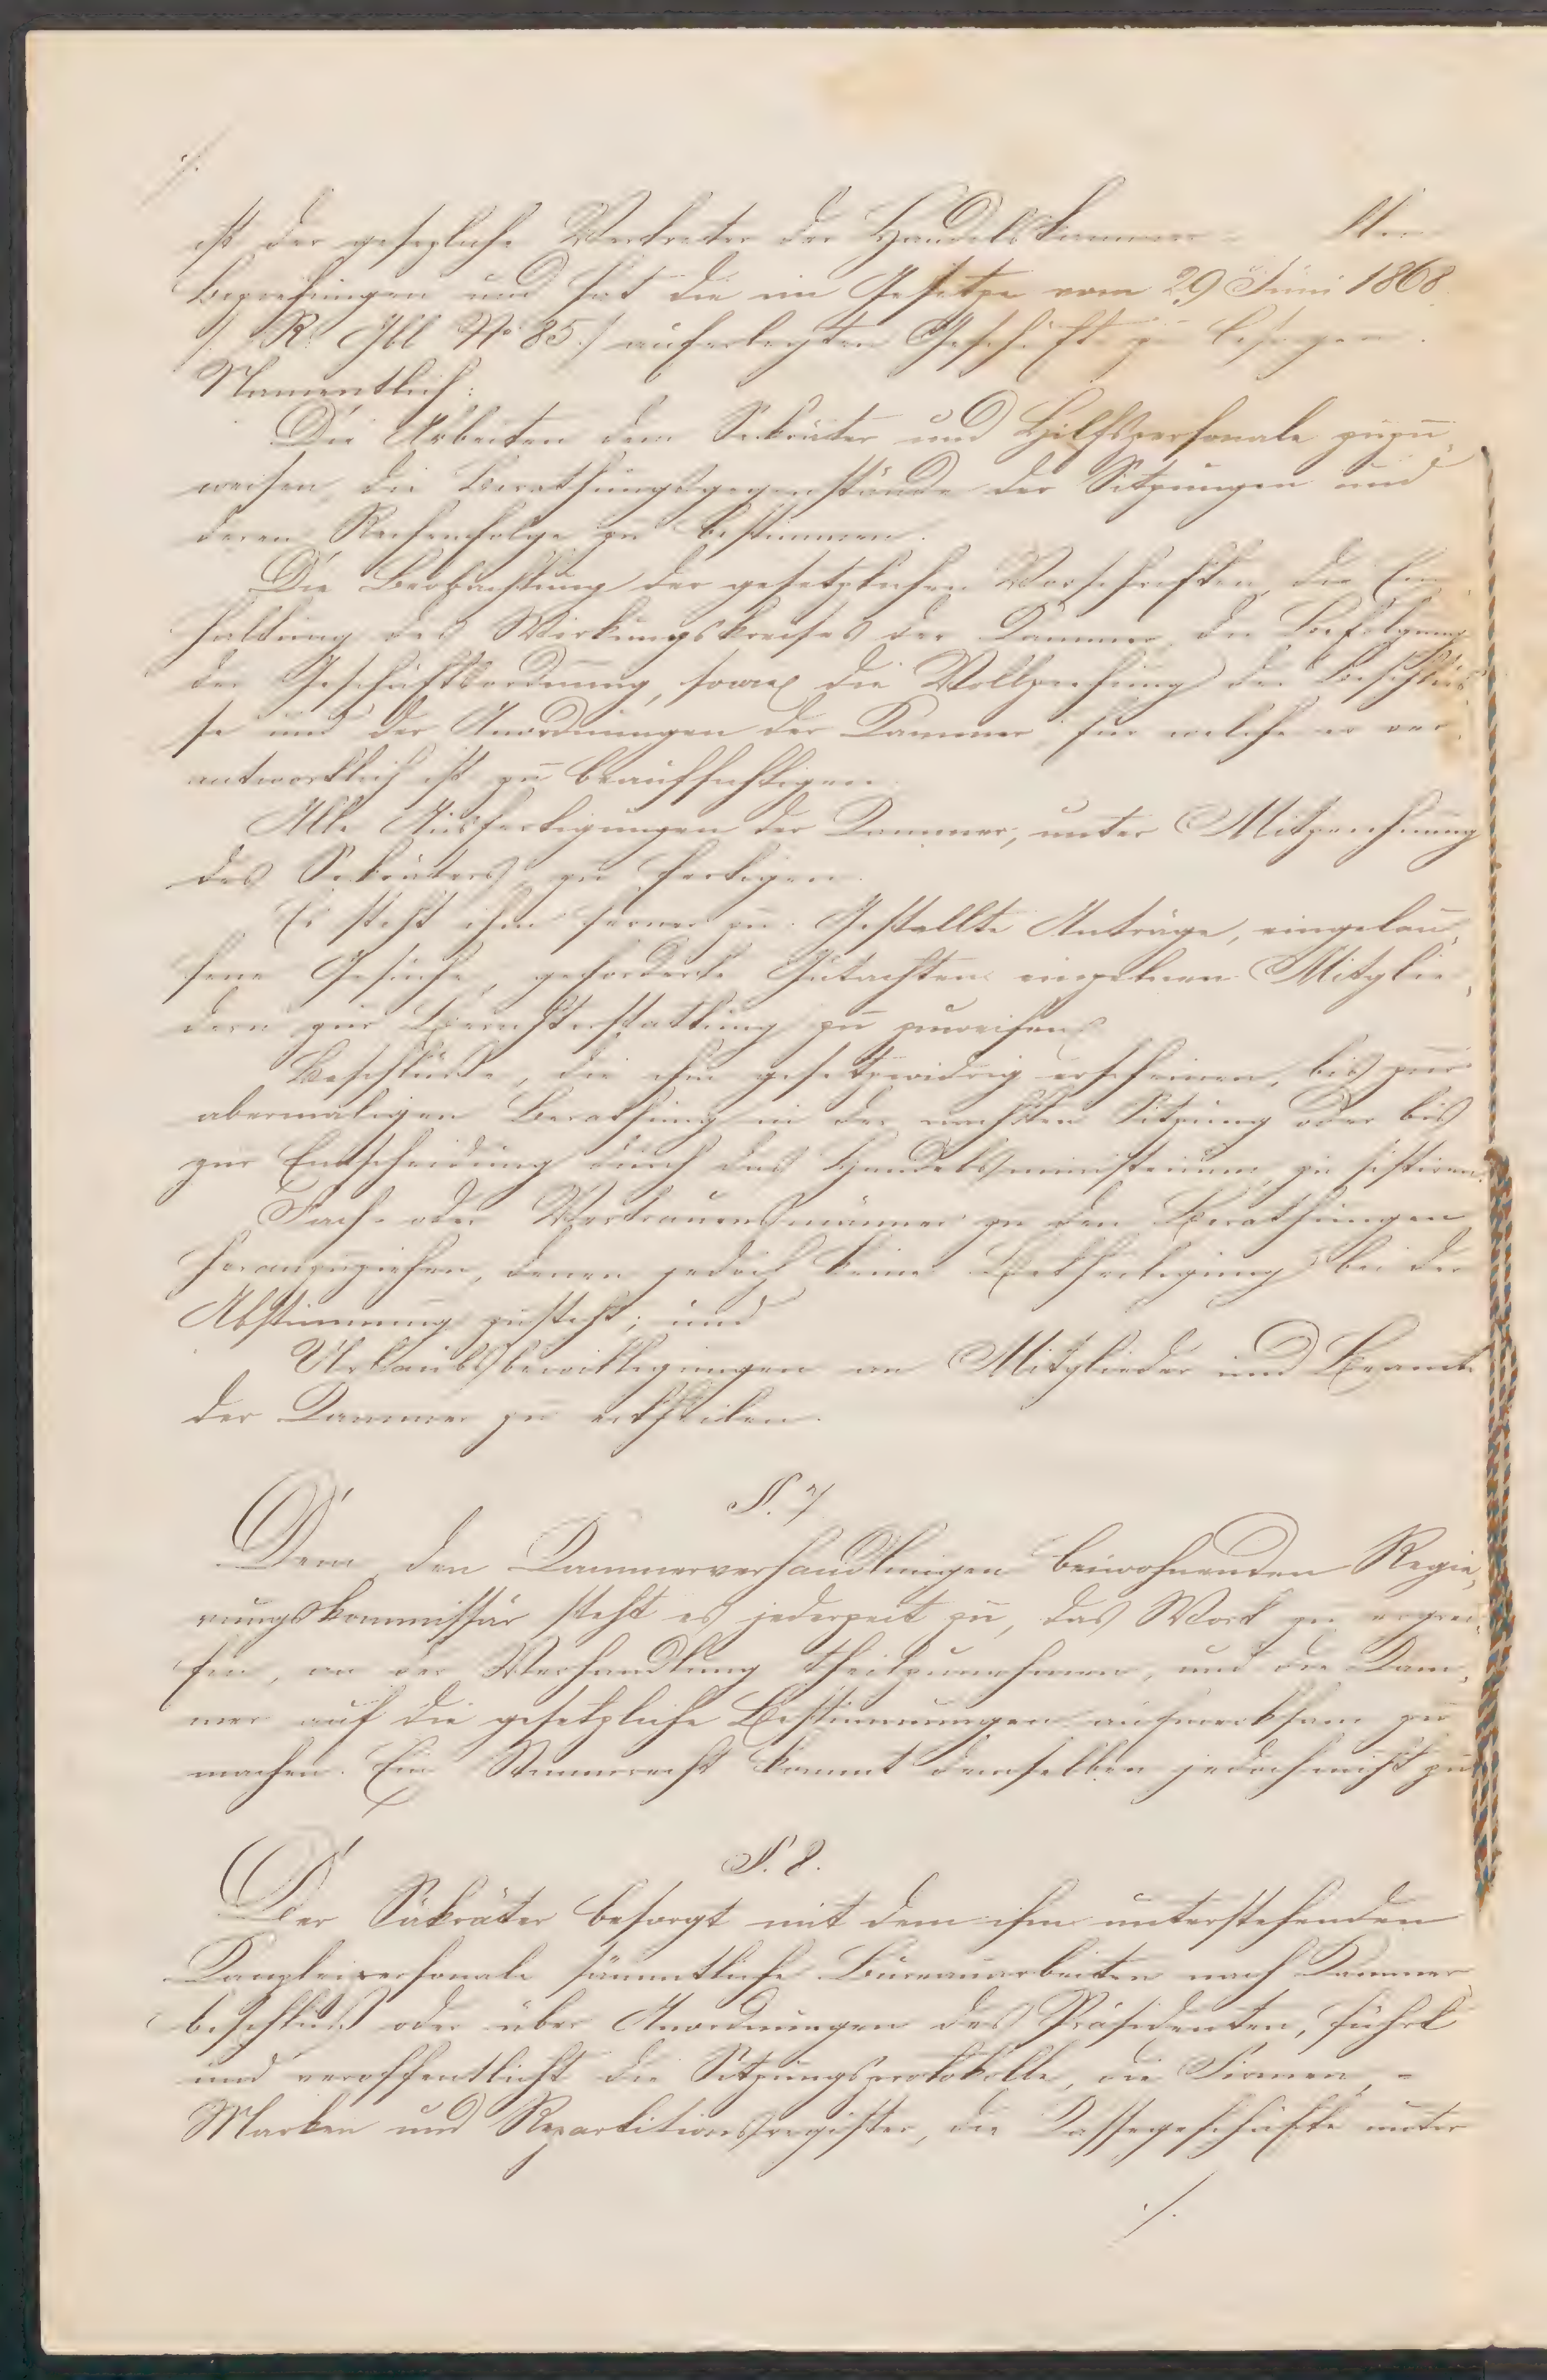 ./.
ist der gesezliche Vertreter der Handelskammer
Beziehungen und hat die im Gesetze vom 29 Juni 1868
/: R. Gbl No 85 :/ auferlegten Geschäfte zu besorgen.
Namentlich:
Die Arbeiten dem Sekräter und Hilfspersonale zuzu„
weisen, die Berathungsgegenstände der Sitzungen und
deren Reihenfolge zu bestimmen.
Die Beobachtung der gesetzlichen Vorschriften, die Ein„
haltung des Wirkungskreises der Kammer, die Befolgung
der Geschäftsordnung, sowie die Vollziehung der Beschlüs„
se und der Anordnungen der Kammer für welche er ver„
antwortlich ist zu beaufsichtigen.
Alle Ausfertigungen der Kammer, unter Mitzeichnung
des Sekräters zu fertigen.
Es steht ihm ferner zu: Gestellte Anträge, eingelau„
fene Gesuche, geforderte Gutachten einzelnen Mitglie„
dern zur Berichterstattung zu zuweisen,
Beschlüsse, die ihm gesetzwidrig erscheinen, bis zur
abermaligen Berathung in der nächsten Sitzung oder bis
zur Entscheidung durch das Handelsministerium, zu sistiren.
Fach- oder Vertrauensmänner zu den Berathungen
heranzuziehen, denen jedoch keine Betheiligung bei der
Abstimmung zusteht; und
Urlaubsbewilligungen an Mitglieder und Beamte
der Kammer zu ertheilen.
§. 7.
Dem den Kammerverhandlungen beiwohnenden Regie„
rungskommissär steht es jederzeit zu, das Wort zu ergrei„
fen, an der Verhandlung theilzunehmen, und die Kam„
mer auf die gesetzliche Bestimmungen aufmerksam zu
machen. Ein Stimmrecht kommt demselben jedoch nicht zu.
§. 8.
Der Säkräter besorgt mit dem ihm unterstehenden
Kanzleipersonale sämmtliche Bureauarbeiten nach Kammer„
beschluß oder über Anordnungen des Präsidenten, führt
und veröffentlicht die Sitzungsprotokolle, die Firmen, -
Marken und Repartitionsregister, die Kassegeschäfte unter
./.